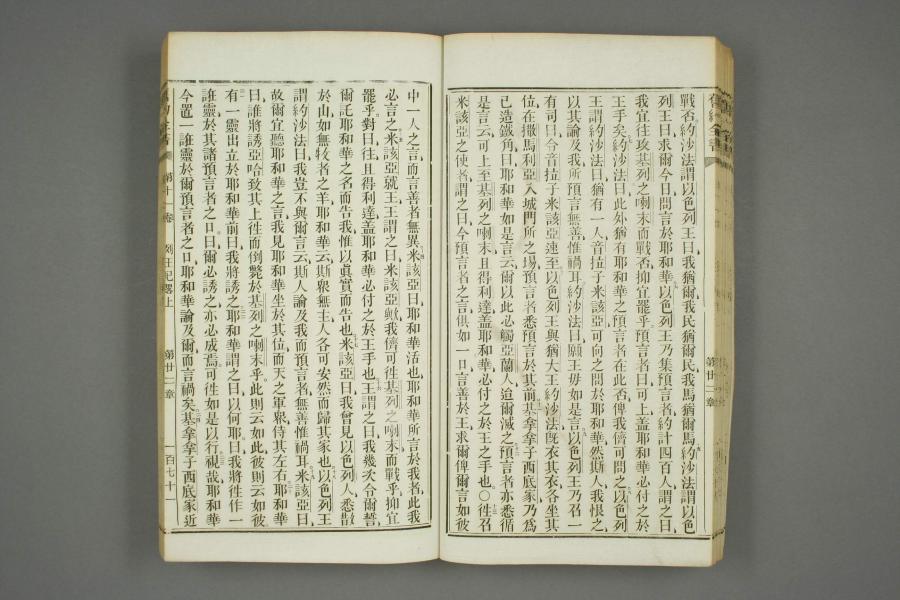 戰否約沙法謂以色列王曰我猶爾我民猶爾民我馬猶爾馬約沙法謂以色
列王曰求爾今日問言於耶和華以色列王乃集預言者約計四百人謂之曰
我宜往攻基列之喇末而戰否抑宜罷乎預言者曰可上盖耶和華必付之於
王手矣約沙法曰此外猶有耶和華之預言者在此否俾我儕可問之以色列
王謂約沙法曰猶有一人音拉子米該亞可向之問於耶和華然斯人我恨之
以其論及我所預言無善惟禍耳約沙法曰願王毋如是言以色列王乃召一
司曰令音拉子米該亞速至以色列王與猶大王約沙法旣衣其衣各坐其
位在撒馬利亞入城門所之場預言者悉預言於其前基拿拿子西底家乃爲
己造鐵角曰耶和華如是言云爾以此必觸亞蘭人迨爾滅之預言者亦悉循
是言云可上至基列之喇末且得利達盖耶和華必付之於王之手也〇往召
米該亞之使者謂之曰今預言者之言俱如一口言善於王求爾俾爾言如彼
第廿二章
中一人之言而言善者無異米該亞曰耶和華活也耶和華所言於我者此我
必言之米該亞就王王謂之曰米該亞歟我儕可往基列之喇末而戰乎抑宜
罷乎對曰往且得利達盖耶和華必付之於王手也王謂之曰我幾次令爾誓
爾託耶和華之名而告我惟以眞實而告也米該亞曰我曾見以色列人悉散
於山如無牧者之羊耶和華云斯衆無主人各可安然而歸其家也以色列王
謂約沙法曰我豈不與爾言云斯人論及我而預言者無善惟禍耳米該亞曰
故爾宜聽耶和華之言我見耶和華坐於其位而天之軍衆侍其左右耶和華
曰誰將誘亞哈致其上往而倒斃於基列之喇末乎此則云如此彼則云如彼
有一靈出立於耶和華前曰我將誘之耶和華謂之曰以何耶曰我將往作一
誑靈於其諸預言者之口曰爾必誘之亦必成焉可往如是以行視哉耶和華
今置一誑靈於爾預言者之口耶和華論及爾而言禍矣基拿拿子西底家近
第十一卷 列王紀畧上 第廿二章 一百七十